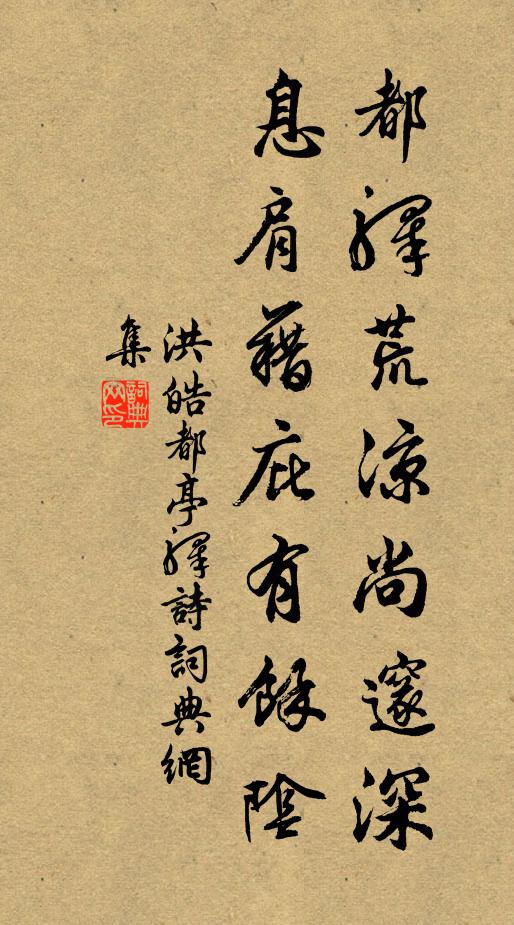 都驛荒涼尚邃深
息肩藉庇有餘陰
洪皓都亭驛詩詞典網
集
詞典
网印